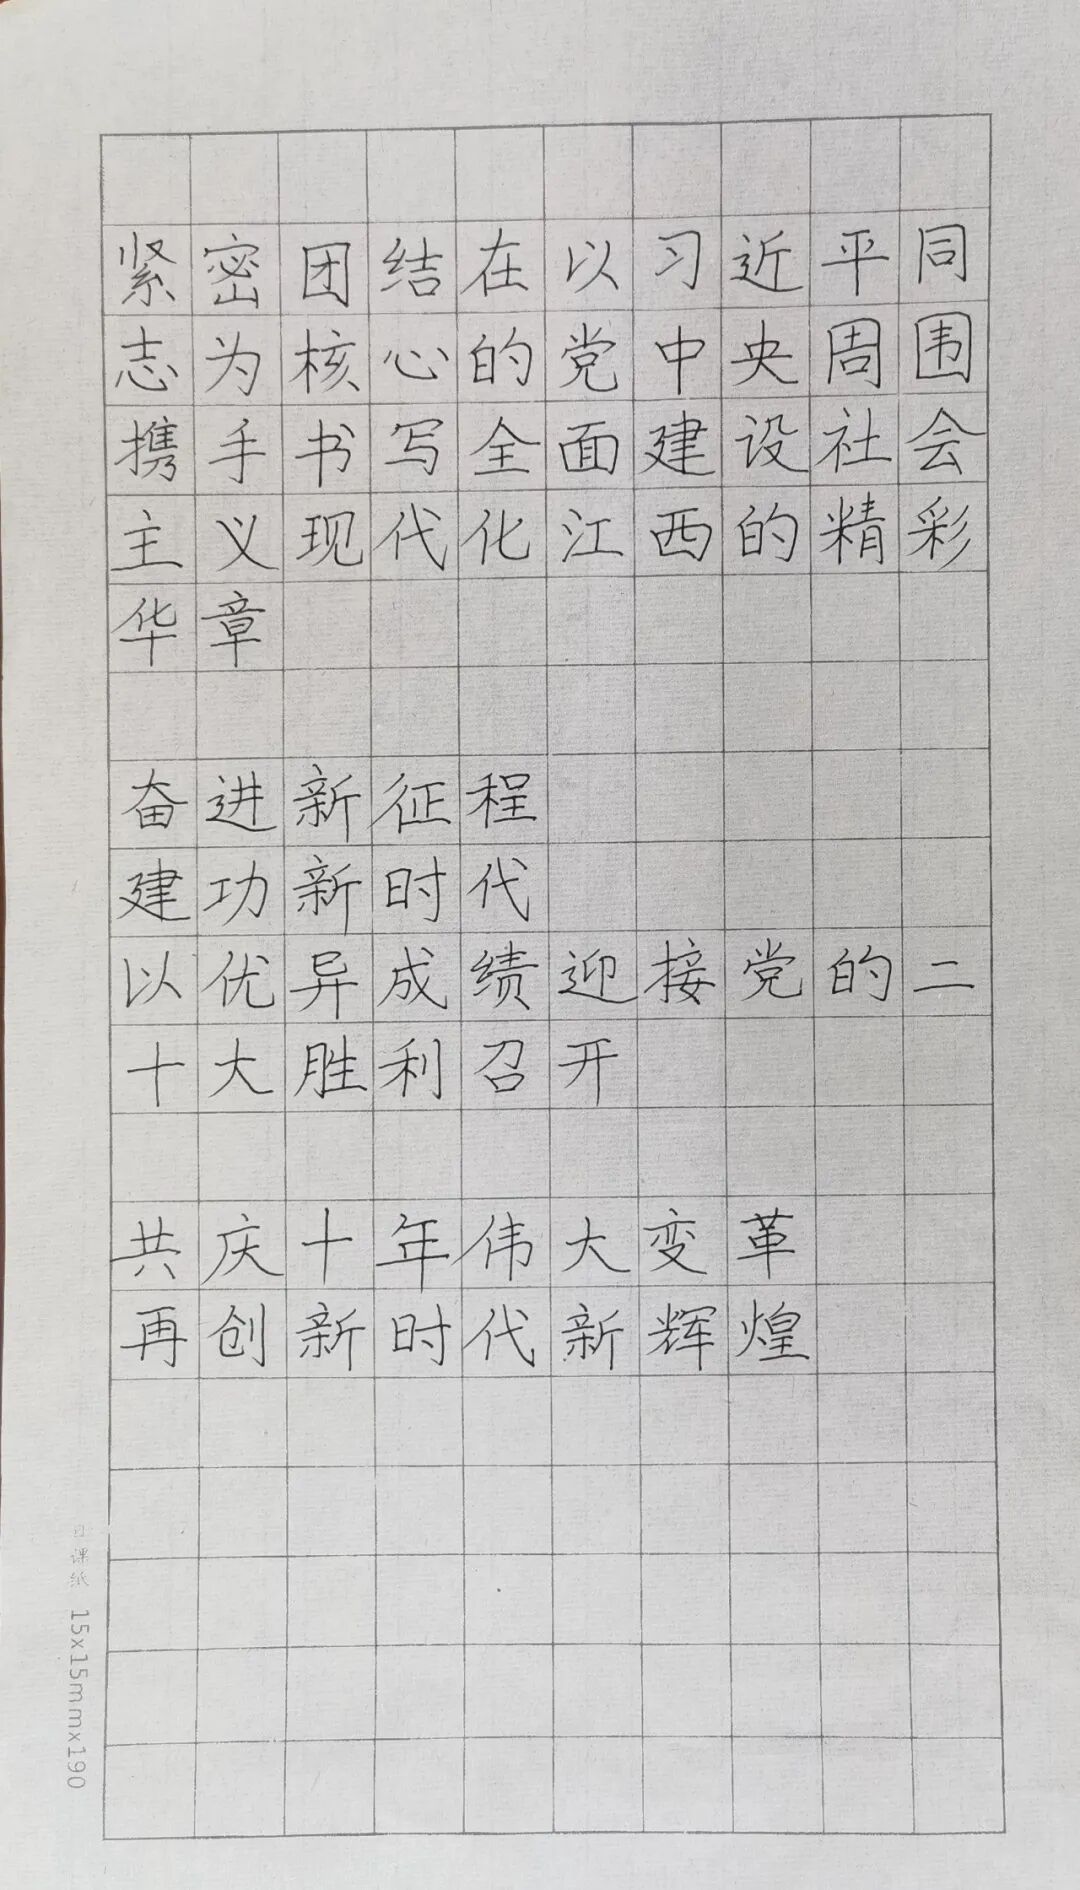 紧密团结在以习近平同
志为核心的党中央周围
携手书写全面建设社会
主义现代化江西的精彩
华章
奋进新征程
建功新时代
以优异成绩迎接党的二
十大胜利召开
共庆十年伟大变革
再创新时代新辉煌
日课纸 15x15mmx190